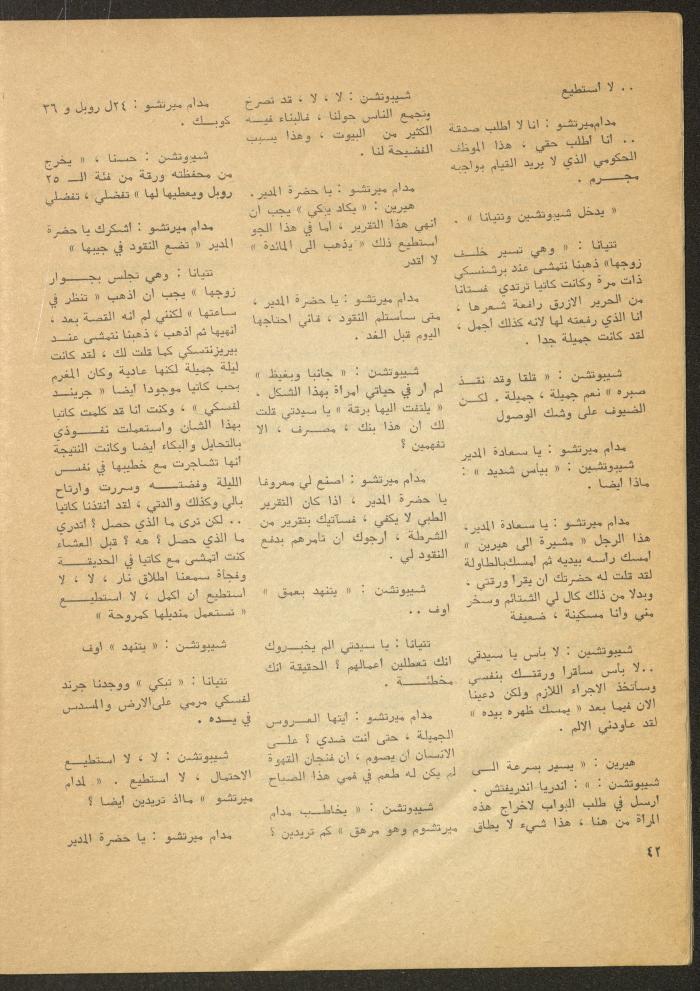 .. لا أستطيع
مدام ميرتشو : أنا لا أطلب صدقة
.. أنا أطلب حقي ، هذا الموظف
الحكومي الذي لا يريد القيام بواجبه
مجـــرم .
« يدخل شيبوتشين وتتيانا » .
تتيانا : « وهي تسير خلـف
زوجها» ذهبنا نتمشى عند برشنسكي
ذات مرة وكانت كاتيا ترتدي فستانا
من الحرير الازرق رافعة شعرها ،
انا الذي رفعته لها لانه كذلك أجمل ،
لقد كانت جميلة جدا .
شيبوتشن : « تلقا وقد نفـذ
صبره » نعم جميلة ، جميلة . لكـن
الضيوف على وشك الوصول
مدام ميرتشو : يا سعادة المدير
شيبوتشين : « بيأس شديد » :
ماذا أيضا .
مدام ميرتشو : يا سعادة المدير،
هذا الرجل « مشيرة الى هيرين »
أمسك رأسه بيديه ثم أمسك بالطاولة
لقد قلت له حضرتك أن يقرأ ورقتي .
وبدلا من ذلك كال لي الشتائم وسخر
مني وأنا مسكينة ، ضعيفة
شيبوتشين : لا بأس يا سيدتي
..لا بأس سأقرأ ورقتـــك بنفسي
وسأتخذ الاجراء اللازم ولكن دعينا
الآن فيما بعد « يمسك ظهره بيده »
لقد عاودني الالم .
هيرين : « يسير بسرعة الـــى
شيبوتشن : » : أندريا أندريفتش .
أرسل في طلب البواب لاخراج هذه
المرأة من هنا ، هذا شيء لا يطاق
شيبوتشن : لا ، لا ، قد تصرخ
وتجمع الناس حولنا ، فالبناء فيـــه
الكثير من البيوت ، وهذا يسبب
الفضيحة لنا .
مدام ميرتشو : يا حضرة المدير.
هيرين : « يكاد يبكي » يجب أن
أنهي هذا التقرير ، أما في هذا الجو
استطيع ذلك « يذهب الى المائدة »
لا أقدر
مدام ميرتشو : يا حضرة المدير ،
متى سأستلم النقود ، فاني احتاجها
اليوم قبل الغد .
شيبوتشن : « جانبا وبغيظ »
لم أر في حياتي امرأة بهذا الشكل .
« يلتفت اليها برقة » يا سيدتي قلت
لك ان هذا بنك ، مصــرف ، الا
تفهمين ؟
مدام ميرتشو : اصنع لي معروفا
يا حضرة المدير ، اذا كان التقرير
الطبي لا يكفي ، فسآتيك بتقرير من
الشرطة ، أرجوك أن تأمرهم بدفع
النقود لي .
شيبوتشن : « يتنهد بعمق »
أوف ..
تتيانا : يا سيدتي ألم يخبـــروك
انك تعطلين أعمالهم ؟ الحقيقة انك
مخطئـــــة .
مدام ميرتشو : أيتها العـــروس
الجميلة ، حتى أنت ضدي ؟ علـــى
الانسان أن يصوم ، ان فنجان القهوة
لم يكن له طعم في فمي هذا الصباح
شيبوتشن : « يخاطــب مدام
ميرتشوم وهو مرهق » كم تريدين ؟
مدام ميرتشو : ٢٤ل روبل و ٣٦
كوبـــك .
شيبوتشن : حسنا ، « يخرج
من محفظته ورقة من فئة الـــ ٢٥
روبل ويعطيها لها » تفضلي ، تفضلي
مدام ميرتشو : أشكرك يا حضرة
المدير « تضع النقود في جيبها »
تتيانا : وهي تجلس بجـــوار
زوجها » يجب أن أذهب « تنظر في
ساعتها » لكنني لم أنه القصة بعد ،
أنهيها ثم أذهب ، ذهبنا نتمشى عنـــد
بيريزنتسكي كما قلت لك ، لقد كانت
ليلة جميلة لكنها عادية وكان المغرم
بحب كاتيا موجودا أيضا « جرينـد
لفسكي » ، وكنت أنا قد كلمت كاتيا
بهذا الشأن واستعملت نفـــوذي
بالتحايل والبكاء أيضا وكانت النتيجة
أنها تشاجرت مع خطيبها في نفـــس
الليلة وفضتـــــه وسررت وارتاح
بالي وكذلك والدتي ، لقد أنقذنا كاتيا
.. لكن ترى ما الذي حصل ؟ أتدري
ما الذي حصل ؟ هه ؟ قبل العشاء
كنت أتمشى مع كاتيا في الحديقـــة
وفجأة سمعنا اطلاق نار ، لا ، لا
أستطيع أن أكمل ، لا استطيـــــع
« تستعمل منديلها كمروحة »
شيبوتشن : « يتنهد » أوف
تتيانا : « تبكي » ووجدنا جرند
لفسكي مرمي على الارض والمسدس
في يـــده .
شيبوتشن : لا ، لا استطيـــع
الاحتمال ، لا استطيع . « لمدام
ميرتشو » مااذ تريدين أيضا ؟
مدام ميرتشو : يا حضرة المدير
٤٢